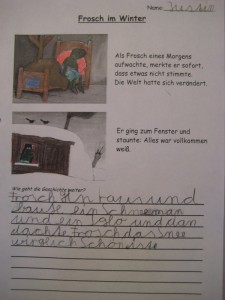 Name: Jessie
Frosch im Winter
Als Frosch eines Morgens
aufwachte, merkte er sofort,
dass etwas nicht stimmte.
Die Welt hatte sich verändert.
Er ging zum Fenster und
staunte: Alles war vollkommen
weiß.
Wie geht die Geschichte weiter?
Frosch rausund
baute einschneeman
und ein iglo und dan
dachte frosch dassnee
schönste